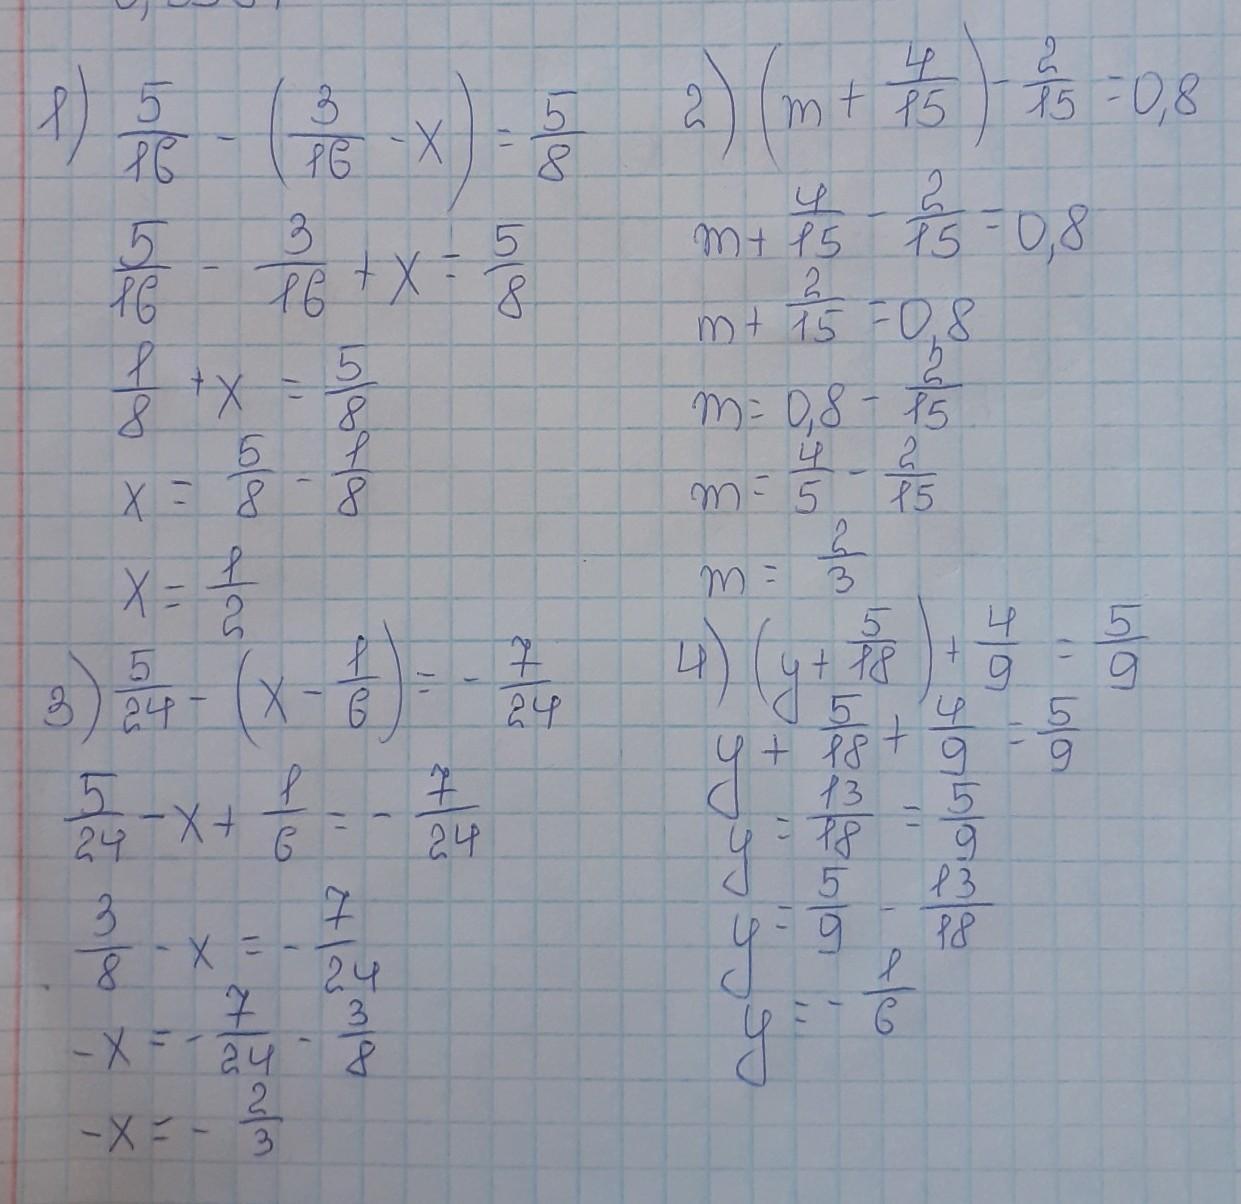 1) 5/16 - (3/16 - x) = 5/8
5/16 - 3/16 + x = 5/8
1/8 + x = 5/8
x = 5/8 - 1/8
x = 1/2
2) (m + 4/15) - 2/15 = 0,8
m + 4/15 - 2/15 = 0,8
m + 2/15 = 0,8
m = 0,8 - 2/15
m = 4/5 - 2/15
m = 2/3
3) 5/24 - (x - 1/6) = - 7/24
5/24 - x + 1/6 = - 7/24
3/8 - x = - 7/24
-x = - 7/24 - 3/8
-x = - 2/3
4) (y + 5/18) + 4/9 = 5/9
y + 5/18 + 4/9 = 5/9
y = 13/18 = 5/9
y = 5/9 - 13/18
y = - 1/6